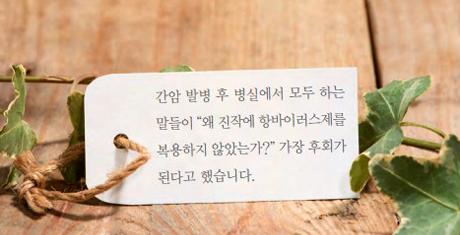 간암 발병 후 병실에서 모두 하는
말들이 “왜 진작에 항바이러스제를
복용하지 않았는가?” 가장 후회가
된다고 했습니다.